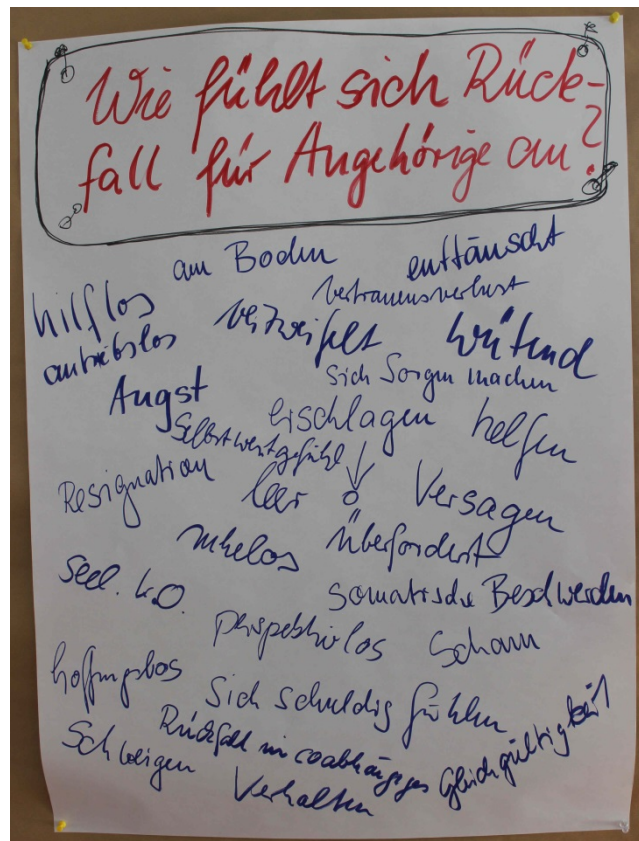 Wie fühlt sich Rück-
fall für Angehörige an?
am Boden
enttäuscht
hilflos
Vertrauensverlust
antriebslos
verzweifelt
wütend
Sich Sorgen machen
Angst
erschlagen
helfen
Selbstwertgefühl
Resignation
leer
↓
0
Versagen
ruhelos
überfordert
Seel. k.O.
Somatische Beschwerden
perspektivlos
Scham
hoffnungslos
Sich schuldig fühlen
Rückfall in coabhängiges
Verhalten
Gleichgültigkeit
Schweigen